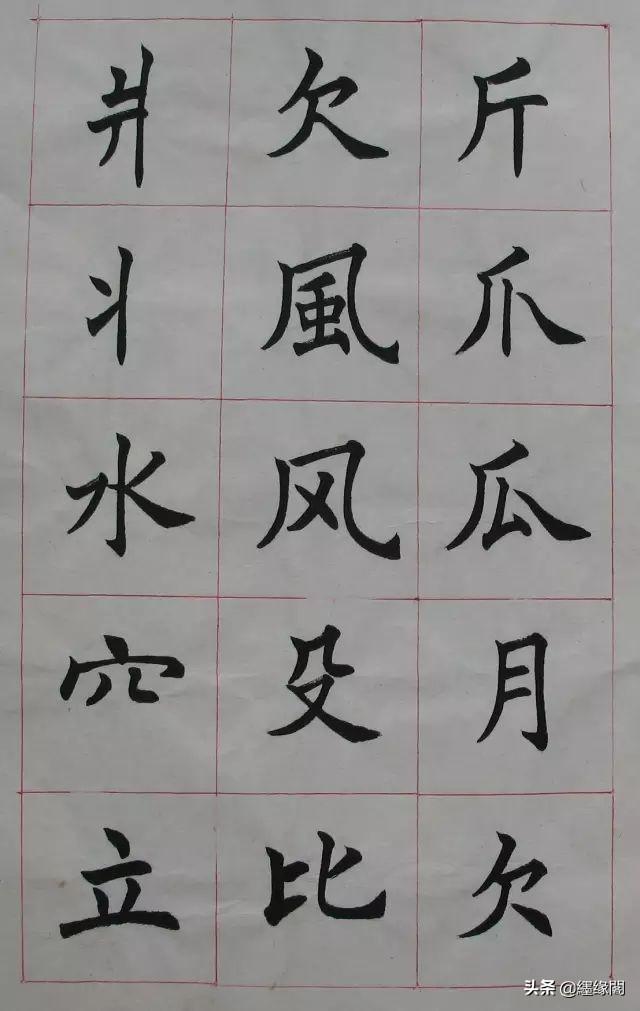 斤爪瓜月欠
欠風风殳比
爿丬水穴立
头条